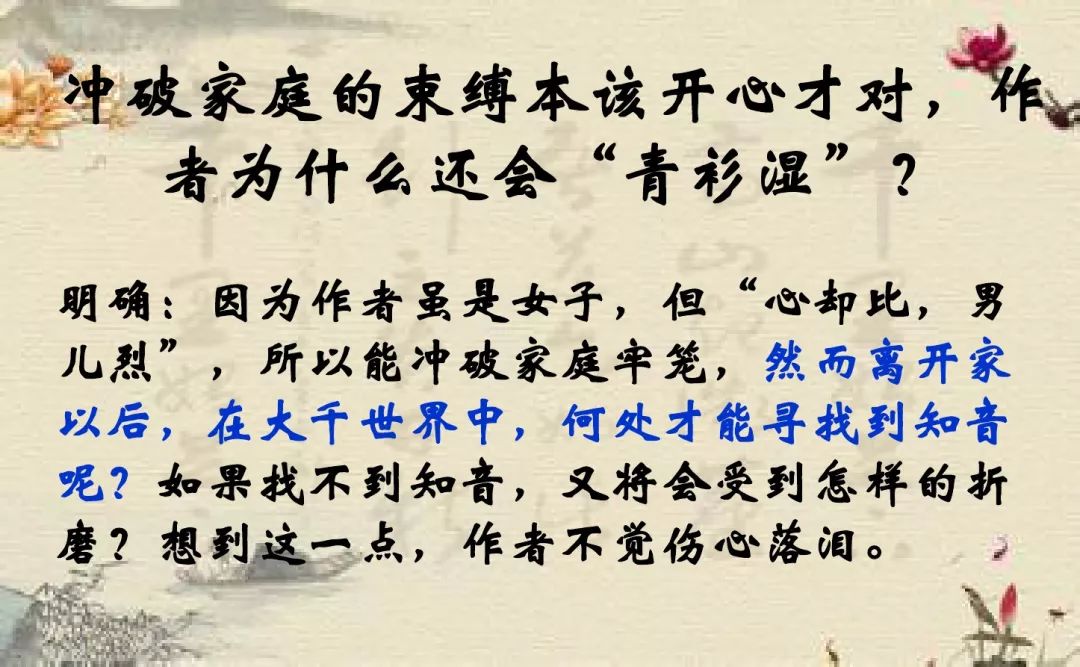 冲破家庭的束缚本该开心才对，作
者为什么还会“青衫湿”？
明确：因为作者虽是女子，但“心却比，男
儿烈”，所以能冲破家庭牢笼，然而离开家
以后，在大千世界中，何处才能寻找到知音
呢？如果找不到知音，又将会受到怎样的折
磨？想到这一点，作者不觉伤心落泪。